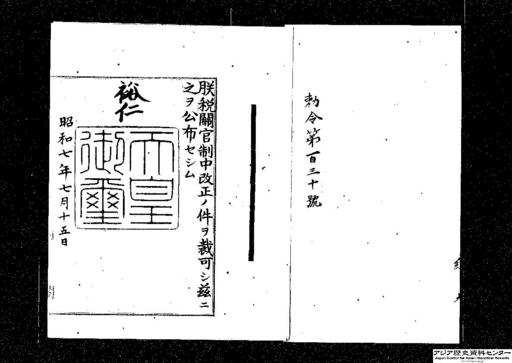 勅令第百三十號
朕税關官制中改正ノ件ヲ裁可シ茲ニ
之ヲ公布セシム
裕仁
天皇
御璽
昭和七年七月十五日
アジア歴史資料センター
Japan Center for Asian Historical Records